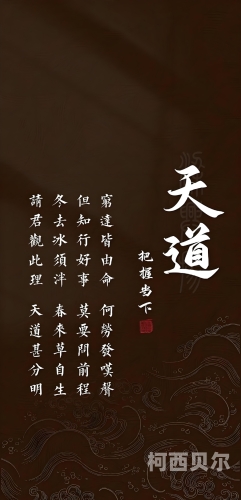 天道
把握当下
窮達皆由命 何勞發嘆聲
但知行好事 莫要問前程
冬去冰須泮 春來草自生
請君觀此理 天道甚分明
柯西贝尔